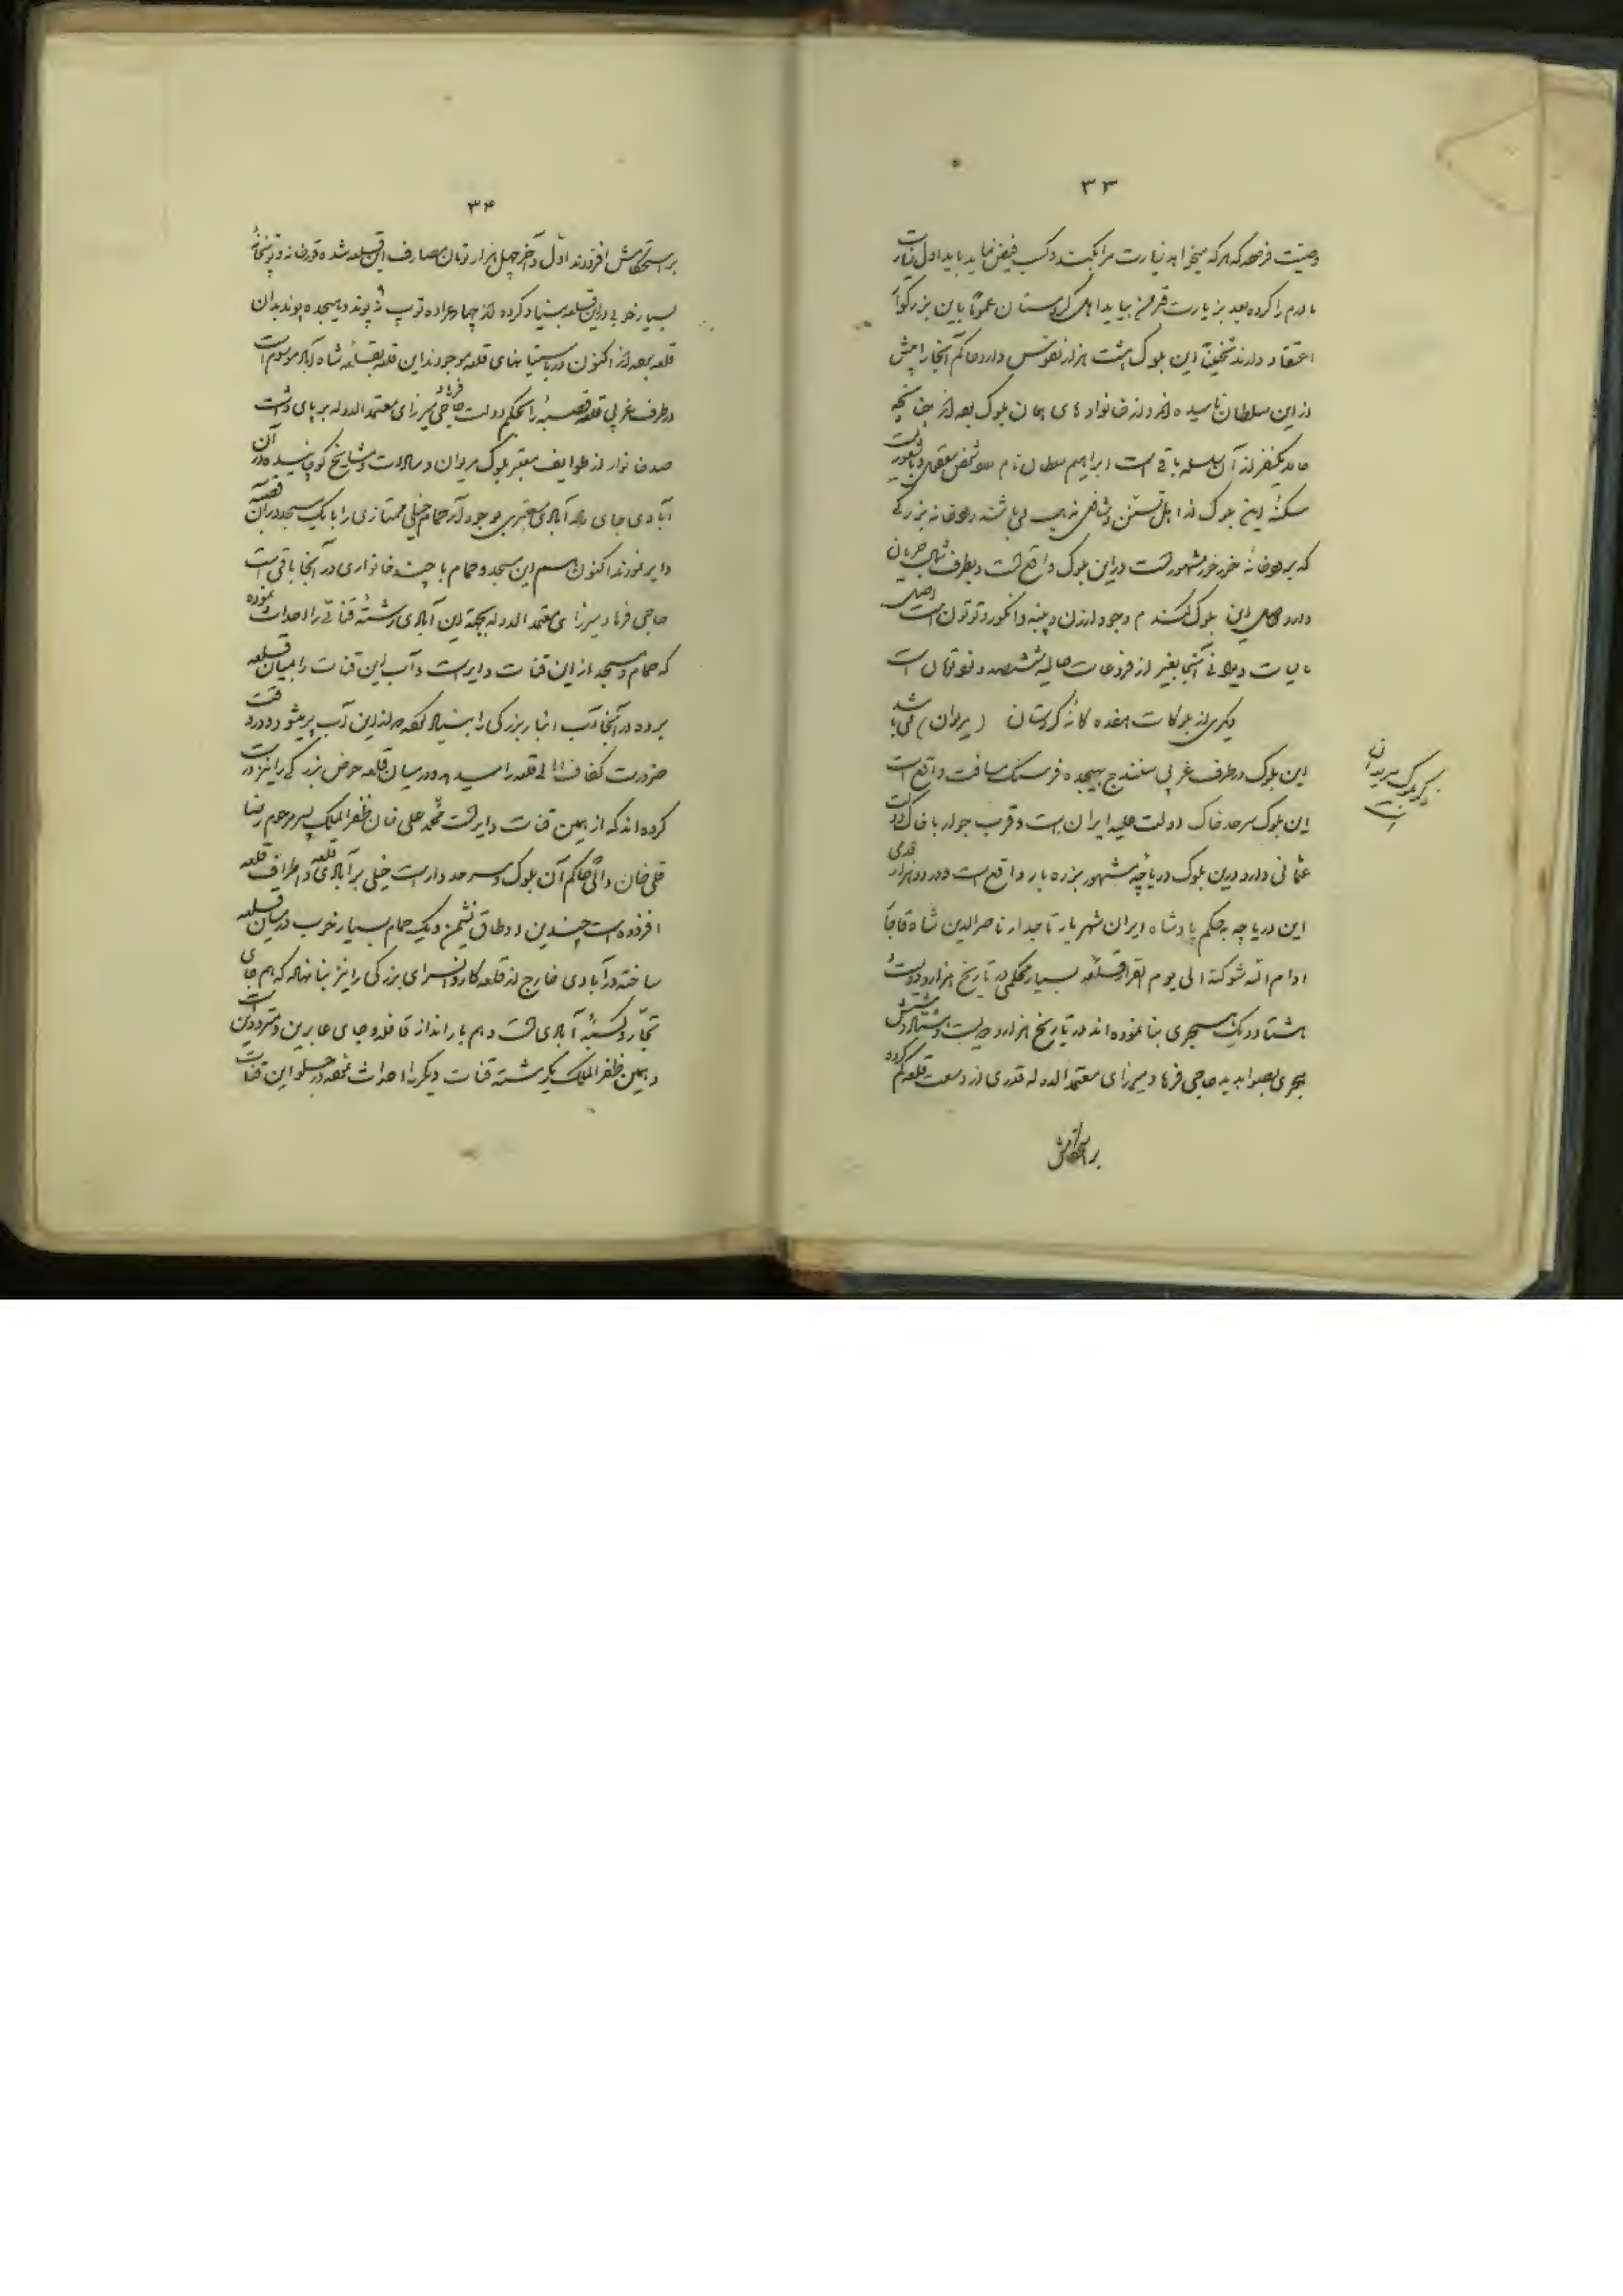 ۳۳
وصیت فرموده که هرکه میخواهد زیارت مرا بکند و کسب فیض نماید باید اول زیارت
مادرم را کرده بعد بزیارت قبر من بیاید اهل کردستان عموماً باین بزرگوار
اعتقاد دارند تخمیناً این بلوک هشت هزار نفوس دارد حاکم آنجا را پیش
از این سلطان نامیده‌اند و از خانواده‌های همان بلوک بوده‌اند چنانچه
حال یکنفر از آن سلسله باقی است ابراهیم سلطان نام شخص معقول باشعوریست
سکنهٔ این بلوک از اهل تسنن و شافعی مذهب می‌باشند رودخانه بزرگی
که برودخانهٔ خورخوره مشهور است در این بلوک واقع است و بطرف شمال جریان
دارد حاصل این بلوک گندم و جو و ارزن و پنبه و انگور و توتون است اصل
مالیات دیوانی آنجا بغیر از فروعات حالیه ششصد و نود تومان است
دیگری از بلوکات هفده گانهٔ کردستان (مریوان) می‌باشد
این بلوک در طرف غربی سنندج بهیجده فرسنگ مسافت واقع است
این بلوک سرحد خاک دولت علیه ایران است و قرب جوار با خاک دولت
عثمانی دارد در این بلوک دریاچهٔ مشهور بزره‌بار واقع است و در دو هزار قدمی
این دریاچه بحکم پادشاه ایران شهریار تاجدار ناصرالدین شاه قاجار
ادام الله شوکته الی یوم القرار قلعهٔ بسیار محکمی در تاریخ هزار و دویست
هشتاد و یک هجری بنا نموده‌اند در تاریخ هزار و دویست و هشتاد و شش
هجری بصوابدید حاجی فرهاد میرزای معتمدالدوله قدری از وسعت قلعه کم کرده
بر استحکامش
ذکر بلوک مریوان است
۳۴
بر استحکامش افزودند اول و آخر چهل هزار تومان مصارف این قلعه شده قورخانه و توپخانهٔ
بسیار خوبی در این قلعه بنیاد کرده‌اند چهار عراده توپ نه پوند و هیجده پوند بدان
قلعه برده‌اند اکنون در باستیانهای قلعه موجودند این قلعه بقلعه شاه‌آباد موسوم است
در طرف غربی قلعه قصبهٔ را بحکم دولت حاجی فرهاد میرزای معتمدالدوله برپای داشت
صد خانوار از طوایف معتبر بلوک مریوان و سادات و مشایخ کوچانیده در آن
آبادی جای داد آبادی معتبری بوجود آورد حمام خیلی ممتازی را با یک مسجد در آن قصبه
دایر نمودند اکنون هم این مسجد و حمام با چند خانواری در آنجا باقی است
حاجی فرهاد میرزای معتمدالدوله بجهة این آبادی رشتهٔ قناتی را احداث نموده
که حمام و مسجد از این قنات دایر است و آب این قنات را بمیان قلعه
برده در آنجا آب انبار بزرگی را بنیاد نموده از این آب پر میشود در وقت
ضرورت کفاف اهالی قلعه را میدهد و در میان قلعه حوض بزرگی را نیز درست
کرده‌اند که از همین قنات دایر است محمد علی خان ظفرالملک پسر مرحوم رضا
قلی خان والی حاکم آن بلوک و سرحددار است خیلی بر آبادی قلعه و اطراف قلعه
افزوده است چندین اوطاق نشیمن و یک حمام بسیار خوب در میان قلعه
ساخته در آبادی خارج از قلعه کاروانسرای بزرگی را نیز بنا نهاده که هم جای
تجار و کسبهٔ آبادی است و هم بارانداز قافله و جای عابرین و مترددین است
و همین ظفرالملک یک رشته قنات دیگر را احداث نموده در جلو این قنات